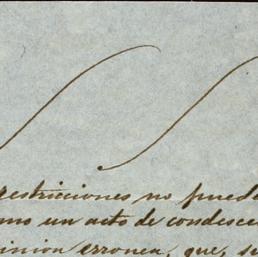 restricciones no puede
mo un acto de condesce
inion erronea, que, su